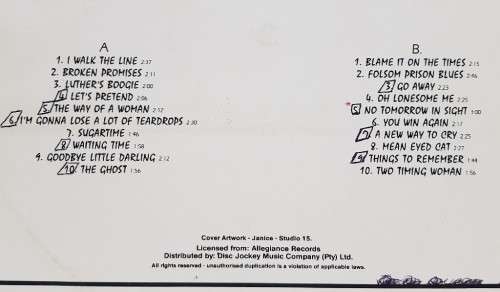 A
1. I WALK THE LINE 2:37
2. BROKEN PROMISES 2:11
3. LUTHER'S BOOGIE 2:00
4. LET'S PRETEND 2:06
5. THE WAY OF A WOMAN 2:12
6. I'M GONNA LOSE A LOT OF TEARDROPS 2:30
7. SUGARTIME 1:46
8. WAITING TIME 1:58
9. GOODBYE LITTLE DARLING 2:12
10. THE GHOST 1:56
B.
1. BLAME IT ON THE TIMES 2:15
2. FOLSOM PRISON BLUES 2:46
3. GO AWAY 2:23
4. OH LONESOME ME 2:25
5. NO TOMORROW IN SIGHT 3:00
6. YOU WIN AGAIN 2:17
7. A NEW WAY TO CRY 2:25
8. MEAN EYED CAT 2:27
9. THINGS TO REMEMBER 1:44
10. TWO TIMING WOMAN 1:56
Cover Artwork - Janice - Studio 15.
Licensed from: Allegiance Records
Distributed by: Disc Jockey Music Company (Pty) Ltd.
All rights reserved - unauthorised duplication is a violation of applicable laws.